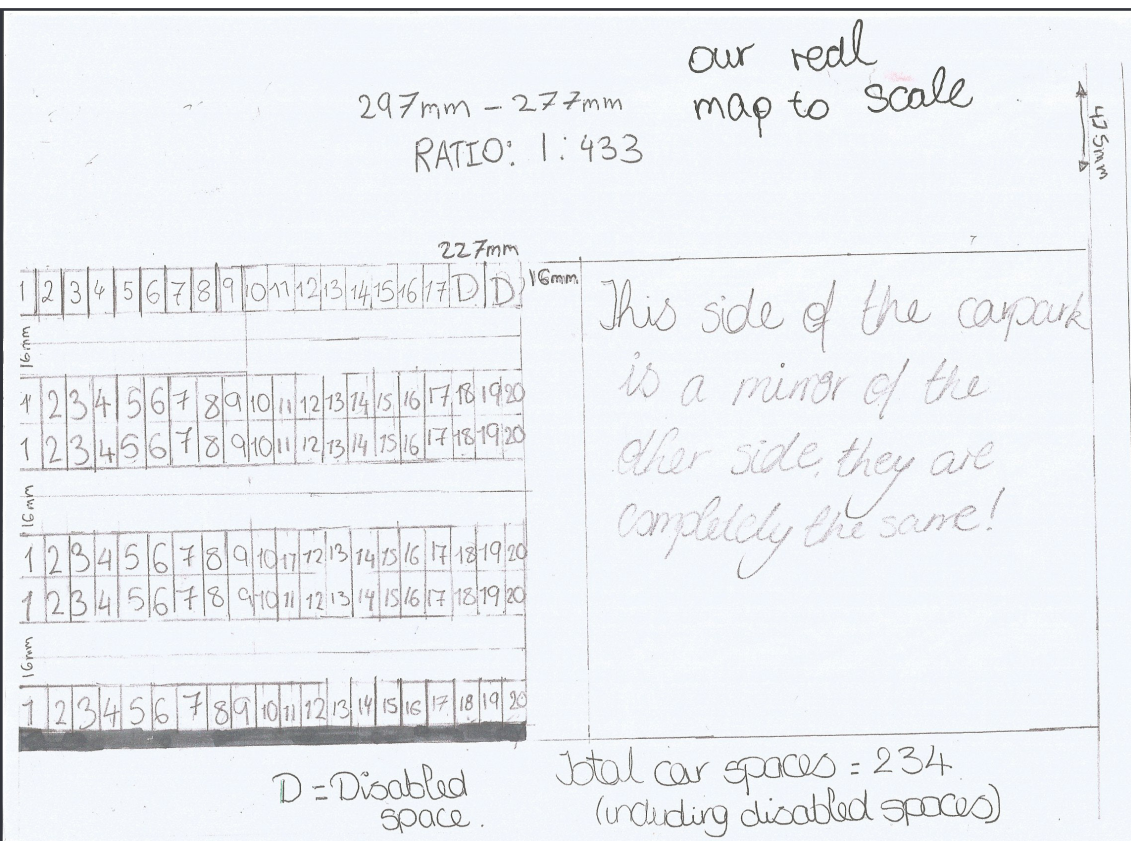 our real
map to scale
297mm - 277mm
RATIO: 1:433
47.5mm
227mm
16mm
1 2 3 4 5 6 7 8 9 10 11 12 13 14 15 16 17 D D
16mm
1 2 3 4 5 6 7 8 9 10 11 12 13 14 15 16 17 18 19 20
1 2 3 4 5 6 7 8 9 10 11 12 13 14 15 16 17 18 19 20
16mm
1 2 3 4 5 6 7 8 9 10 11 12 13 14 15 16 17 18 19 20
1 2 3 4 5 6 7 8 9 10 11 12 13 14 15 16 17 18 19 20
16mm
1 2 3 4 5 6 7 8 9 10 11 12 13 14 15 16 17 18 19 20
This side of the carpark
is a mirror of the
other side, they are
completely the same!
D = Disabled
space.
Total car spaces = 234
(including disabled spaces)